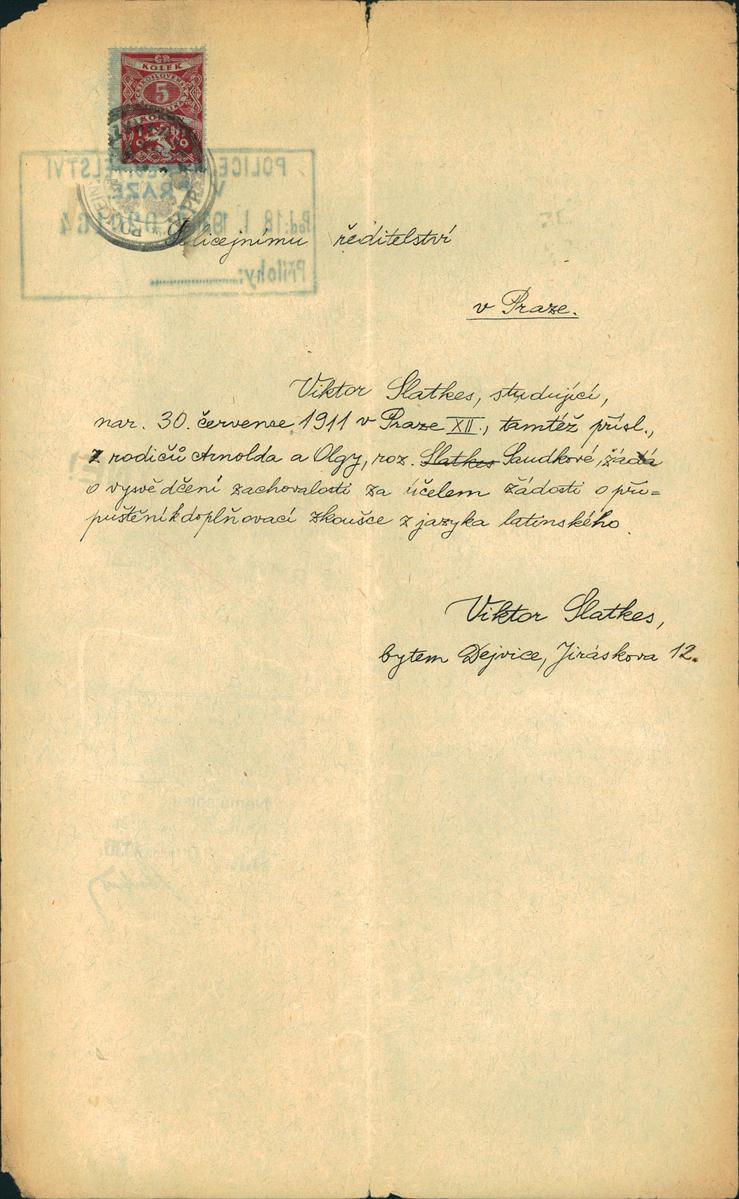 KOLEK
5
POLICEJNÍ ŘEDITELSTVÍ
V PRAZE
Policejnímu ředitelství
Přílohy:
v Praze.
Viktor Slatkes, studující,
nar. 30. července 1911 v Praze XII., tamtéž přísl.,
z rodičů Arnolda a Olgy, roz. Slatkes Saudkové, žádá
o vysvědčení zachovalosti za účelem žádosti o při=
puštění k doplňovací zkoušce z jazyka latinského.
Viktor Slatkes,
bytem Dejvice, Jiráskova 12.